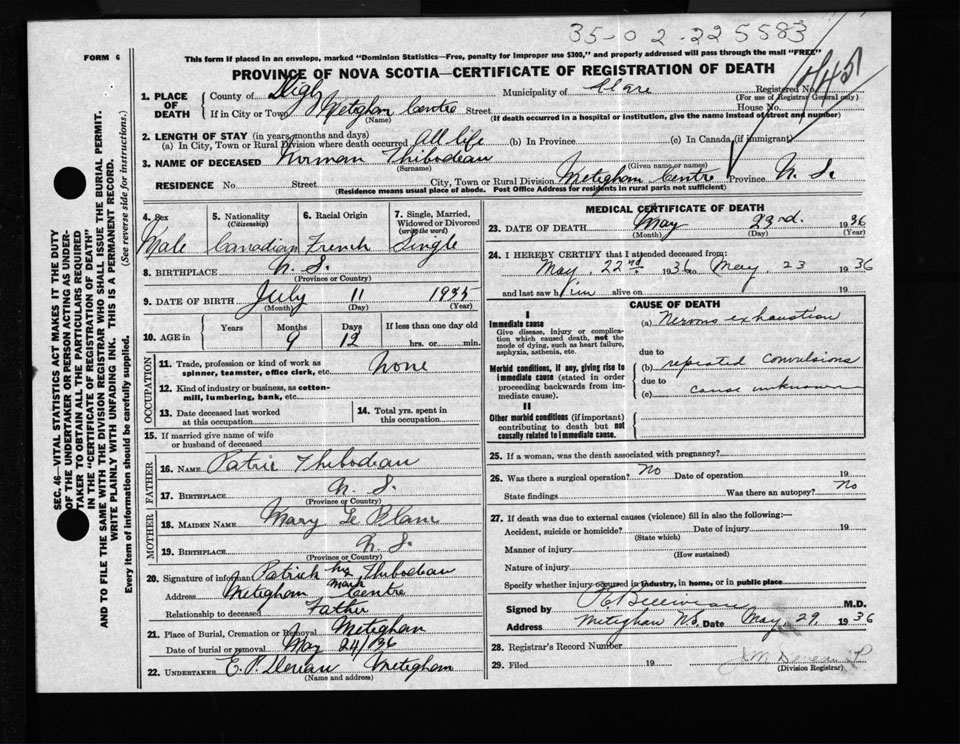 35-02-225583
FORM 6
This form if placed in an envelope, marked "Dominion Statistics—Free, penalty for improper use $300," and properly addressed will pass through the mail "FREE"
PROVINCE OF NOVA SCOTIA—CERTIFICATE OF REGISTRATION OF DEATH
1. PLACE OF DEATH County of Digby Municipality of Clare Registered No.
(For use of Registrar General only)
If in City or Town Metighan Centre Street House No.
(Name) (If death occurred in a hospital or institution, give the name instead of street and number)
2. LENGTH OF STAY (in years, months and days)
(a) In City, Town or Rural Division where death occurred All life (b) In Province (c) In Canada (if immigrant)
3. NAME OF DECEASED Norman Thibodeau
(Surname) (Given name or names)
RESIDENCE No. Street City, Town or Rural Division Metighan Centre Province N. S.
(Residence means usual place of abode. Post Office Address for residents in rural parts not sufficient)
4. Sex Male
5. Nationality (Citizenship) Canadian
6. Racial Origin French
7. Single, Married, Widowed or Divorced (write the word) Single
8. BIRTHPLACE N. S.
(Province or Country)
9. DATE OF BIRTH July 11 1935
(Month) (Day) (Year)
10. AGE in Years Months 9 Days 12 If less than one day old hrs. or min.
OCCUPATION
11. Trade, profession or kind of work as spinner, teamster, office clerk, etc. None
12. Kind of industry or business, as cotton-mill, lumbering, bank, etc.
13. Date deceased last worked at this occupation
14. Total yrs. spent in this occupation
15. If married give name of wife or husband of deceased
FATHER
16. NAME Patric Thibodeau
17. BIRTHPLACE N. S.
(Province or Country)
MOTHER
18. MAIDEN NAME Mary Le Blanc
19. BIRTHPLACE N. S.
(Province or Country)
20. Signature of informant Patrick his mark Thibodeau
Address Metighan Centre
Relationship to deceased Father
21. Place of Burial, Cremation or Removal Metighan
Date of burial or removal May 24/36
22. UNDERTAKER E. P. Metighan
(Name and address)
MEDICAL CERTIFICATE OF DEATH
23. DATE OF DEATH May 23rd. 1936
(Month) (Day) (Year)
24. I HEREBY CERTIFY that I attended deceased from:
May. 22nd. 1936 to May. 23 1936
and last saw him alive on 19
CAUSE OF DEATH
I
Immediate cause
Give disease, injury or complication which caused death, not the mode of dying, such as heart failure, asphyxia, asthenia, etc.
(a) Nervous exhaustion
due to
Morbid conditions, if any, giving rise to immediate cause (stated in order proceeding backwards from immediate cause).
(b) repeated convulsions
due to
(c) cause unknown
II
Other morbid conditions (if important) contributing to death but not causally related to immediate cause.
25. If a woman, was the death associated with pregnancy?
26. Was there a surgical operation? No Date of operation 19
State findings Was there an autopsy? No
27. If death was due to external causes (violence) fill in also the following:—
Accident, suicide or homicide? Date of injury 19
(State which)
Manner of injury
(How sustained)
Nature of injury
Specify whether injury occurred in industry, in home, or in public place
Signed by M.D.
Address Metighan N.S. Date May. 29. 1936
28. Registrar's Record Number
29. Filed 19
(Division Registrar)
SEC. 46—VITAL STATISTICS ACT MAKES IT THE DUTY
OF THE UNDERTAKER OR PERSON ACTING AS UNDER-
TAKER TO OBTAIN ALL THE PARTICULARS REQUIRED
IN THE "CERTIFICATE OF REGISTRATION OF DEATH"
AND TO FILE THE SAME WITH THE DIVISION REGISTRAR WHO SHALL ISSUE THE BURIAL PERMIT.
WRITE PLAINLY WITH UNFADING INK. THIS IS A PERMANENT RECORD.
Every item of information should be carefully supplied. (See reverse side for instructions.)